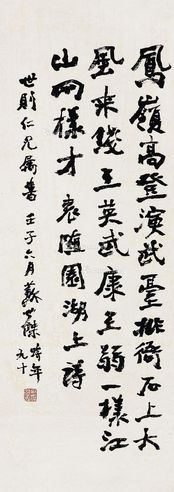 鳳嶺高登演武臺排衙石上大
風來錢王英武康王弱一樣江
山兩樣才 袁随園湖上詩
世則仁兄屬書 壬子六月蘇世傑時年
九十